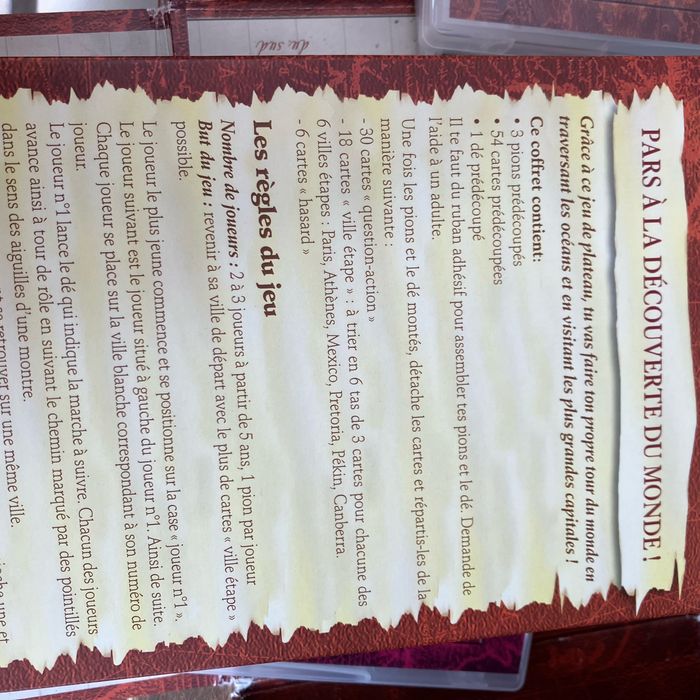 PARS À LA DÉCOUVERTE DU MONDE !
Grâce à ce jeu de plateau, tu vas faire ton propre tour du monde en
traversant les océans et en visitant les plus grandes capitales !
Ce coffret contient:
• 3 pions prédécoupés
• 54 cartes prédécoupées
• 1 dé prédécoupé
Il te faut du ruban adhésif pour assembler tes pions et le dé. Demande de
l'aide à un adulte.
Une fois les pions et le dé montés, détache les cartes et répartis-les de la
manière suivante :
-30 cartes « question-action »
- 18 cartes « ville étape » : à trier en 6 tas de 3 cartes pour chacune des
6 villes étapes : Paris, Athènes, Mexico, Pretoria, Pékin, Canberra.
- 6 cartes « hasard »
Les règles du jeu
Nombre de joueurs : 2 à 3 joueurs à partir de 5 ans, 1 pion par joueur
But du jeu : revenir à sa ville de départ avec le plus de cartes « ville étape »
possible.
Le joueur le plus jeune commence et se positionne sur la case « joueur n°1 ».
Le joueur suivant est le joueur situé à gauche du joueur n°1. Ainsi de suite.
Chaque joueur se place sur la ville blanche correspondant à son numéro de
joueur.
Le joueur n°1 lance le dé qui indique la marche à suivre. Chacun des joueurs
avance ainsi à tour de rôle en suivant le chemin marqué par des pointillés
dans le sens des aiguilles d'une montre.
se retrouver sur une même ville.
une et
du sud